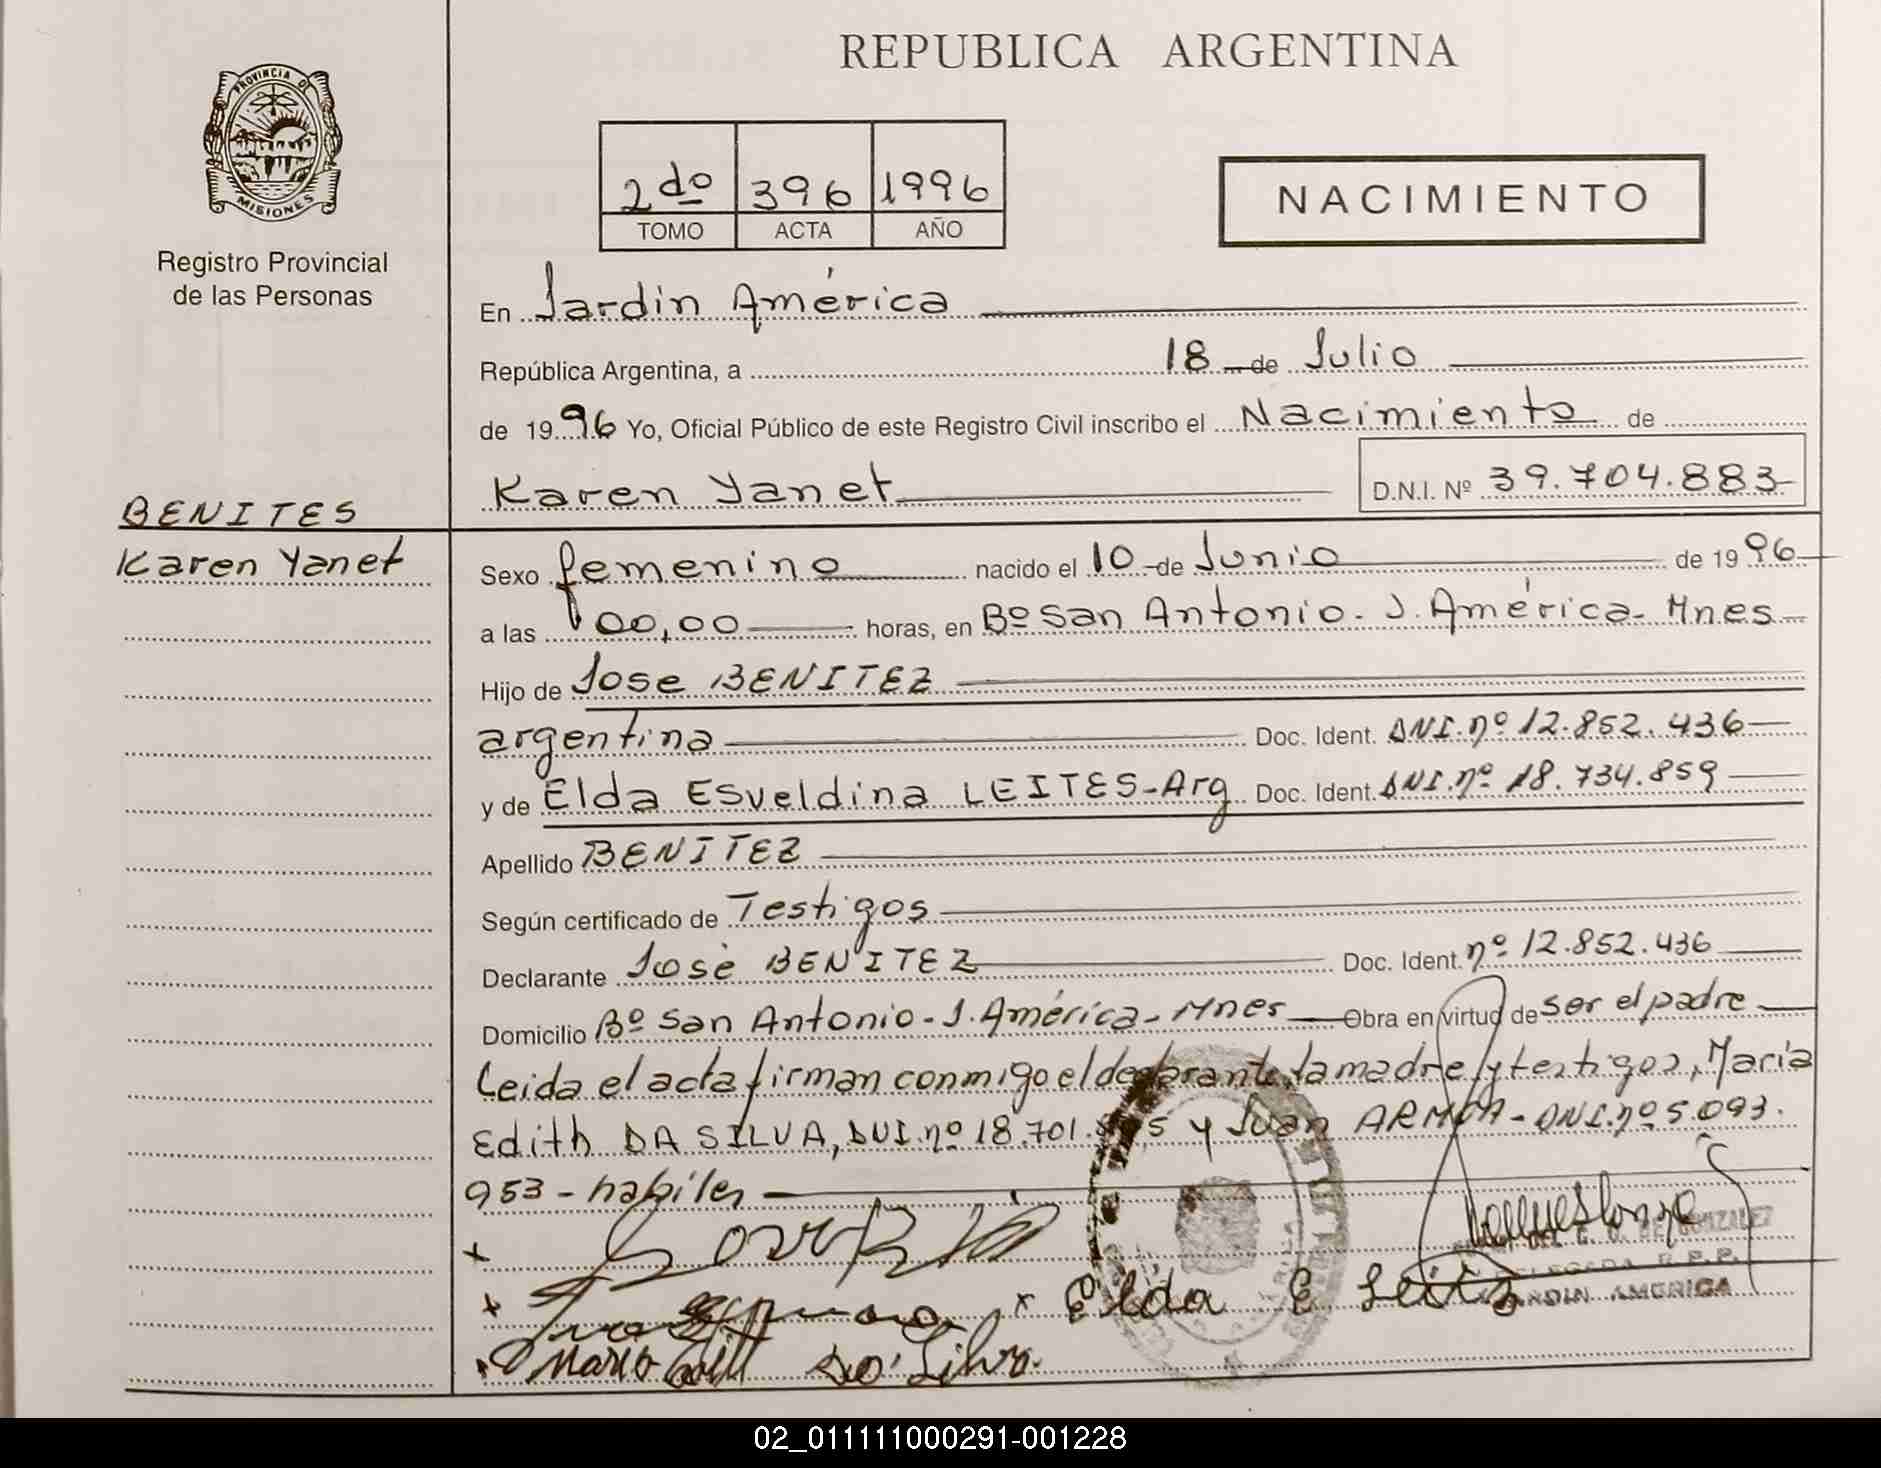 REPUBLICA ARGENTINA
PROVINCIA DE
MISIONES
Registro Provincial
de las Personas
2do 396 1996
TOMO ACTA AÑO
NACIMIENTO
En Jardin América
República Argentina, a 18 de Julio
de 1996 Yo, Oficial Público de este Registro Civil inscribo el Nacimiento de
Karen Yanet D.N.I. Nº 39.704.883
BENITES
Karen Yanet
Sexo femenino nacido el 10 de Junio de 1996
a las 00,00 horas, en Bº San Antonio. J. América- Mnes
Hijo de Jose BENITEZ
argentina Doc. Ident. DNI. nº 12.852.436
y de Elda Esveldina LEITES-Arg Doc. Ident. DNI. nº 18.734.859
Apellido BENITEZ
Según certificado de Testigos
Declarante José BENITEZ Doc. Ident. nº 12.852.436
Domicilio Bº San Antonio- J. América- Mnes Obra en virtud de ser el padre
Leida el acta firman conmigo el declarante, la madre y testigos, María
Edith DA SILVA, DNI. nº 18.701. y Juan ARMOA- DNI. nº 5.093.
953 - habiles
DE GONZALEZ
DELEGADA R.P.P.
JARDIN AMERICA
x Elda E Leites
Maria Edith Da Silva.
02_011111000291-001228